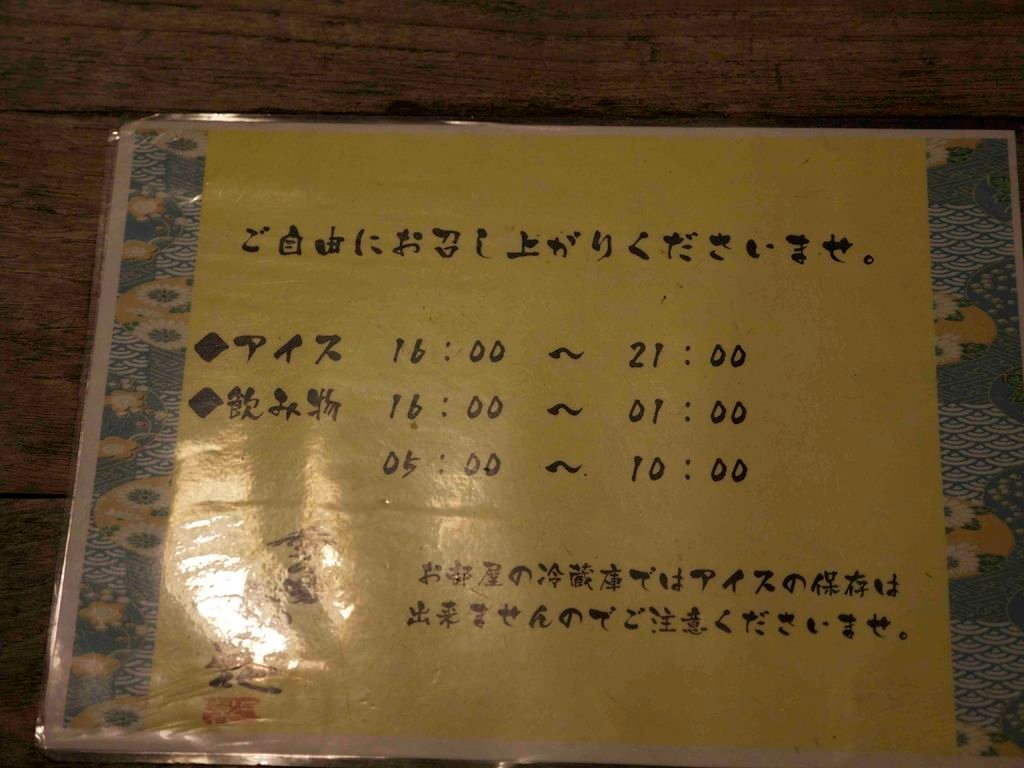 ご自由にお召し上がりくださいませ。
◆アイス 16:00 ～ 21:00
◆飲み物 16:00 ～ 01:00
05:00 ～ 10:00
お部屋の冷蔵庫ではアイスの保存は
出来ませんのでご注意くださいませ。